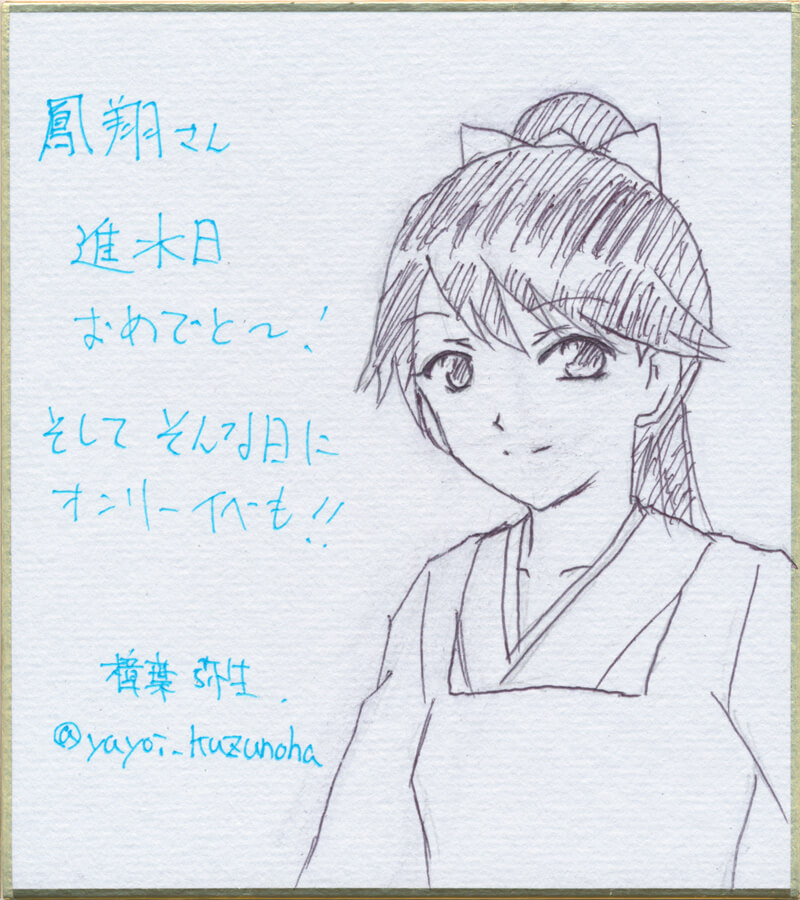 鳳翔さん
進水日
おめでと～!
そして そんな日に
オンリーイベも!!
樟葉 弥生.
@yayoi_kuzunoha